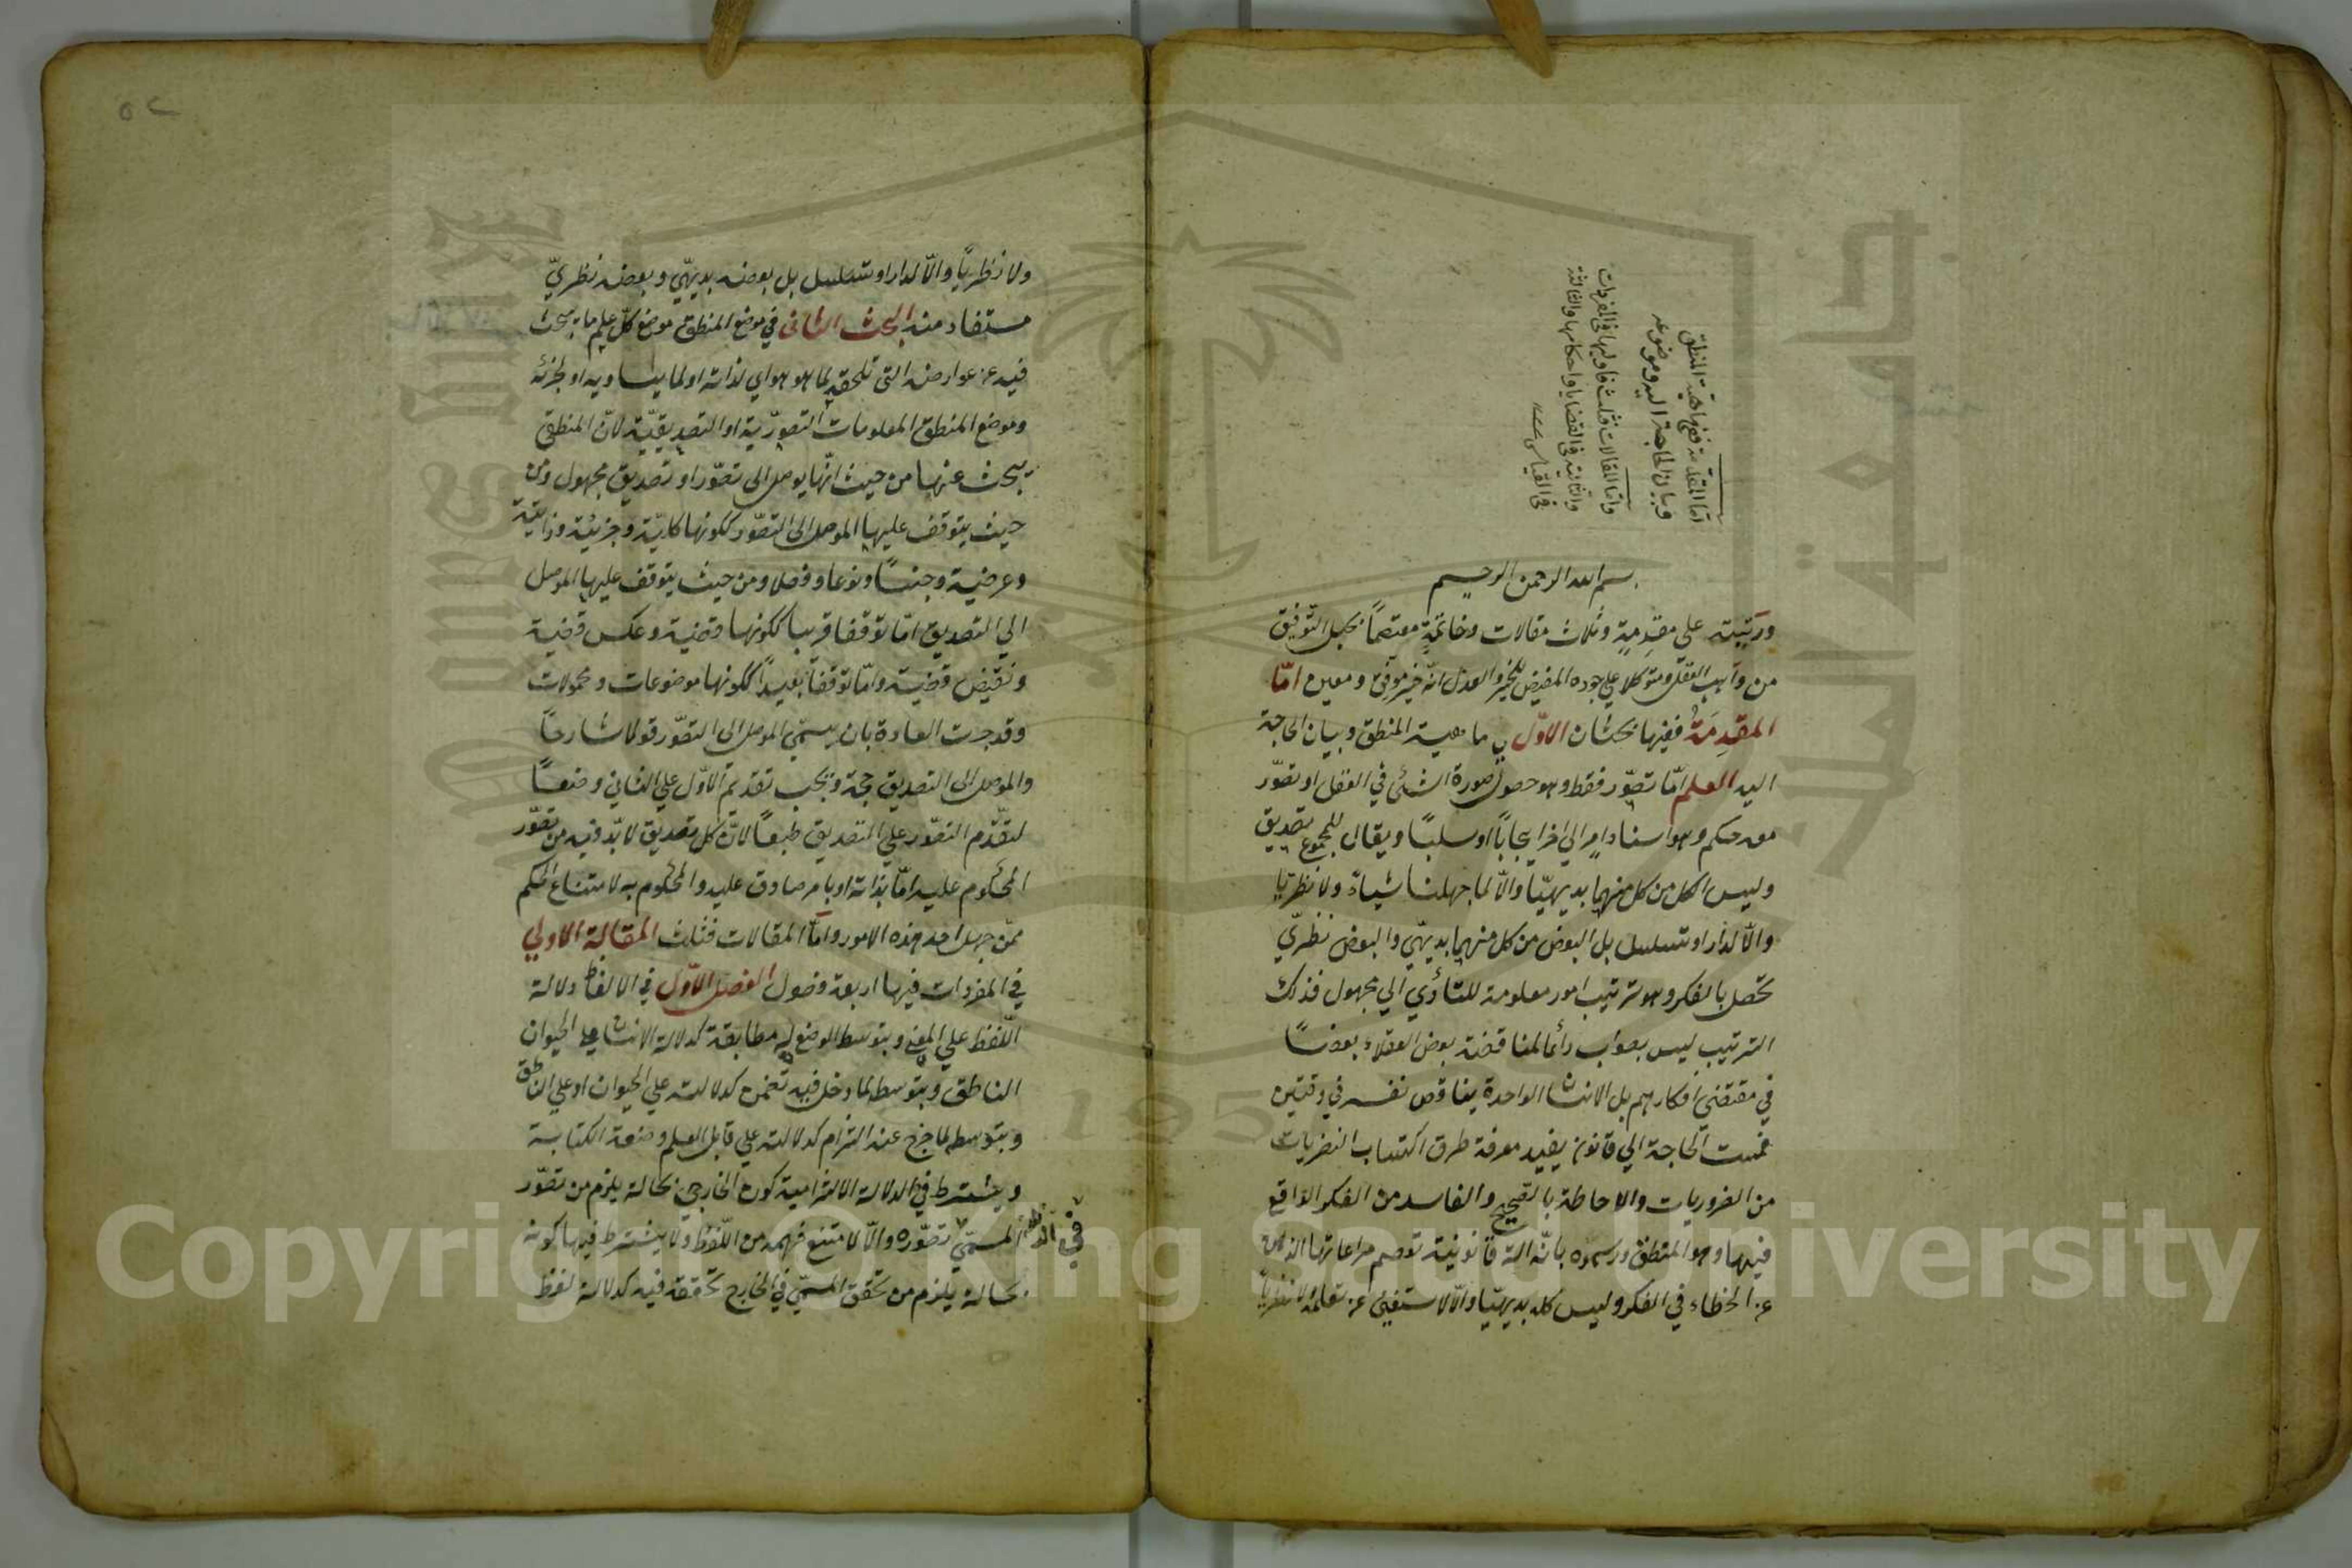 اما المقدمة ففي ماهية المنطق
وبيان الحاجة اليه وموضوعه
واما المقالات فثلث فاوليها في المفردات
والثانية في القضايا واحكامها والثالثة
في القياس
بسم الله الرحمن الرحيم
ورتبته علي مقدمة وثلاث مقالات وخاتمة معتصماً بحبل التوفيق
من واهب العقل ومتوكلا علي جوده المفيض للخير والعدل انه خير موفق ومعين امّا
المقدمة ففيها بحثان الاوّل في ماهية المنطق وبيان الحاجة
اليه العلم امّا تصوّر فقط وهو حصول صورة الشئ في العقل او تصوّر
معه حكم وهو اسناد امر الي اخر ايجاباً او سلبًا ويقال للمجموع تصديق
وليس الكل من كل منهما بديهيّا والّا لما جهلنا شياءً ولا نظريّا
والّا لدار او تسلسل بل البعض من كل منهما بديهّي والبعض نظريّ
تحصل بالفكر وهو ترتيب امور معلومة للتأدي الي مجهول فذلك
الترتيب ليس بصواب دائما لمناقضة بعض العقلاء بعضًا
في مقتضي افكارهم بل الانسان الواحدة يناقض نفسه في وقتين
فمست الحاجة الي قانون يفيد معرفة طرق اكتساب النضريات
من الضروريات والاحاطة بالصحيح والفاسد من الفكر الواقع
فيها وهو المنطق ورسموه بانّه الة قانونية تعصم مراعاتها الذهن
عن الخطاء في الفكر وليس كله بديهيّا والّا لاستغني عن تعلمه ولا نظرياً
٥٢
ولا نظريّاً والّا لدار او تسلسل بل بعضه بديهّي وبعضه نظريّ
مستفاد منه البحث الثاني في موضع المنطق موضع كلّ علم ما يبحث
فيه عن عوارضه التي تلحقه لما هو هو اي لذاته او لما يساويه او لجزئه
وموضع المنطق المعلومات التصوّرية او التصديقيّة لانّ المنطقي
يبحث عنها من حيث انّها يوصل الى تصوّر او تصديق مجهول ومن
حيث يتوقف عليها الموصل الى التصوّر ككونها كليّة وجزئية وذاتية
وعرضية وجنسًا ونوعا وفصلا ومن حيث يتوقف عليها الموصل
الي التصديق امّا توقفا قريبا ككونها قضية وعكس قضية
ونقيض قضية وامّا توقفاً بعيداً ككونها موضوعات ومحمولات
وقد جرت العادة بان يسمّي الموصل الى التصوّر قولا شارحاً
والموصل الى التصديق حجة ويجب تقديم الاوّل علي الثاني وضعًا
لتقدّم التصوّر علي التصديق طبعًا لانّ كل تصديق لا بدّ فيه من تصوّر
المحكوم عليه امّا بذاته او بامر صادق عليه والمحكوم به لامتناع الحكم
ممّن جهل احد هذه الامور وامّا المقالات فثلث المقالة الاولي
في المفردات فيها اربعة فصول الفصل الاوّل في الالفاظ دلالة
اللّفظ علي المعني وبتوسط الوضع له مطابقة كدلالة الانسان علي الحيوان
الناطق وبتوسط لما دخل فيه تضمن كدلالته علي الحيوان او علي الناطق
وبتوسط لما خرج عنه التزام كدلالته علي قابل العلم وصنعة الكتابة
ويشترط في الدلالة الالتزامية كون الخارجي بحالة يلزم من تصوّر
المسمّي تصوّره والّا لامتنع فهمه من اللّفظ ولا يشترط فيها كونه
بحالة يلزم من تحقق المسمّي في الخارج تحققه فيه كدلالة لفظ